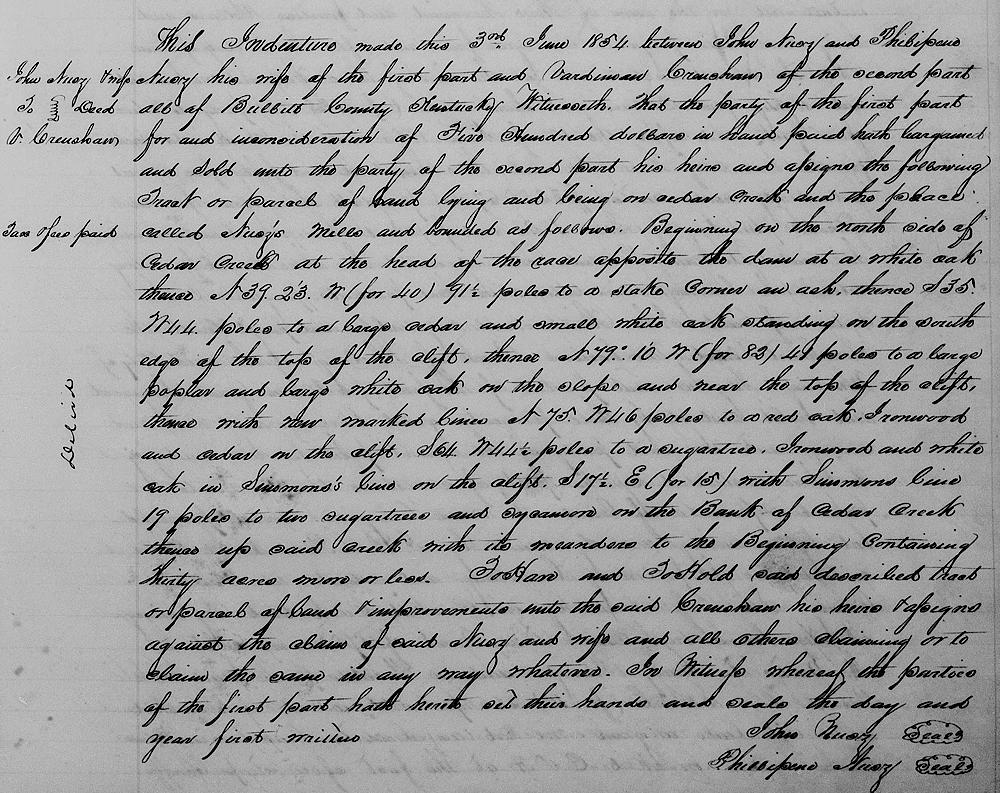 This Indenture made this 3rd June 1854 between John Nusz and Philipene
John Nusz & wife
To Deed
V. Crenshaw
Nusz his wife of the first part and Vardiman Crenshaw of the second part
all of Bullitt County Kentucky Witnesseth. That the party of the first part
for and inconsideration of Five Hundred dollars in hand paid hath bargained
and sold unto the party of the second part his heirs and assigns the following
Tract or parcel of Land lying and being on cedar Creek and the place
Tax & fees paid
called Nusz's Mills and bounded as follows. Beginning on the north side of
Cedar Creek at the head of the race opposite the dam at a white oak
thence N 39. 23. W (for 40) 91½ poles to a stake Corner an ash. thence S35.
W44. poles to a large cedar and small white oak standing on the south
edge of the top of the clift. thence N 79° 10 W (for 82) 49 poles to a large
poplar and large white oak on the slope and near the top of the clift,
thence with new marked lines N 75. W46 poles to a red oak. Ironwood
and cedar on the clift. S64 W44½ poles to a sugartree. Ironwood and white
oak in Simmons's line on the clift. S17½. E (for 15) with Simmons line
19 poles to two sugartrees and sycamore on the Bank of Cedar Creek
thence up said creek with its meanders to the Beginning Containing
thirty acres more or less. To Have and To Hold said described tract
or parcel of Land & improvements unto the said Crenshaw his heirs & assigns
against the claim of said Nusz and wife and all others claiming or to
claim the same in any way whatever. In Witness whereof the parties
of the first part hath hereto set their hands and seals the day and
year first written
John Nusz Seal
Philipene Nusz Seal